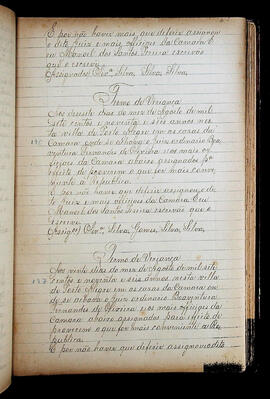 E por não haver mais que deferir assignou
o dito Juiz e mais officiaes da Camara E
eu Manoel dos Santos escrivão
que o escrevi.
Assignados Silva, Silva, Silva,
Termo de Vereança
Aos dias do mez de Agosto de mil
sete centos e noventa e seis annos nes
ta villa de Porto Alegre em as casas da
Camara onde se achava o Juiz ordinario
Fernandes de Oliveira e os mais of
ficiaes da Camara abaixo assignados
de proverem o que for mais conve
niente a Republica.
E por não haver que deferir assignou o di
to Juiz e mais officiaes da Camara E eu
Manoel dos Santos escrivão que o
escrevi.
Silva, Gomes, Silva, Silva,
Termo de Vereança
Aos vinte dias do mez de Agosto de mil sete
centos e noventa e seis annos nesta villa
de Porto Alegre em as casas da Camara on
de se achava o Juiz ordinario Boaventura
Fernandes de Oliveira e os mais officiaes da
Camara abaixo assignados para effeito de
proverem o que for mais conveniente a Re
publica.
E por não haver que deferir assignou o dito